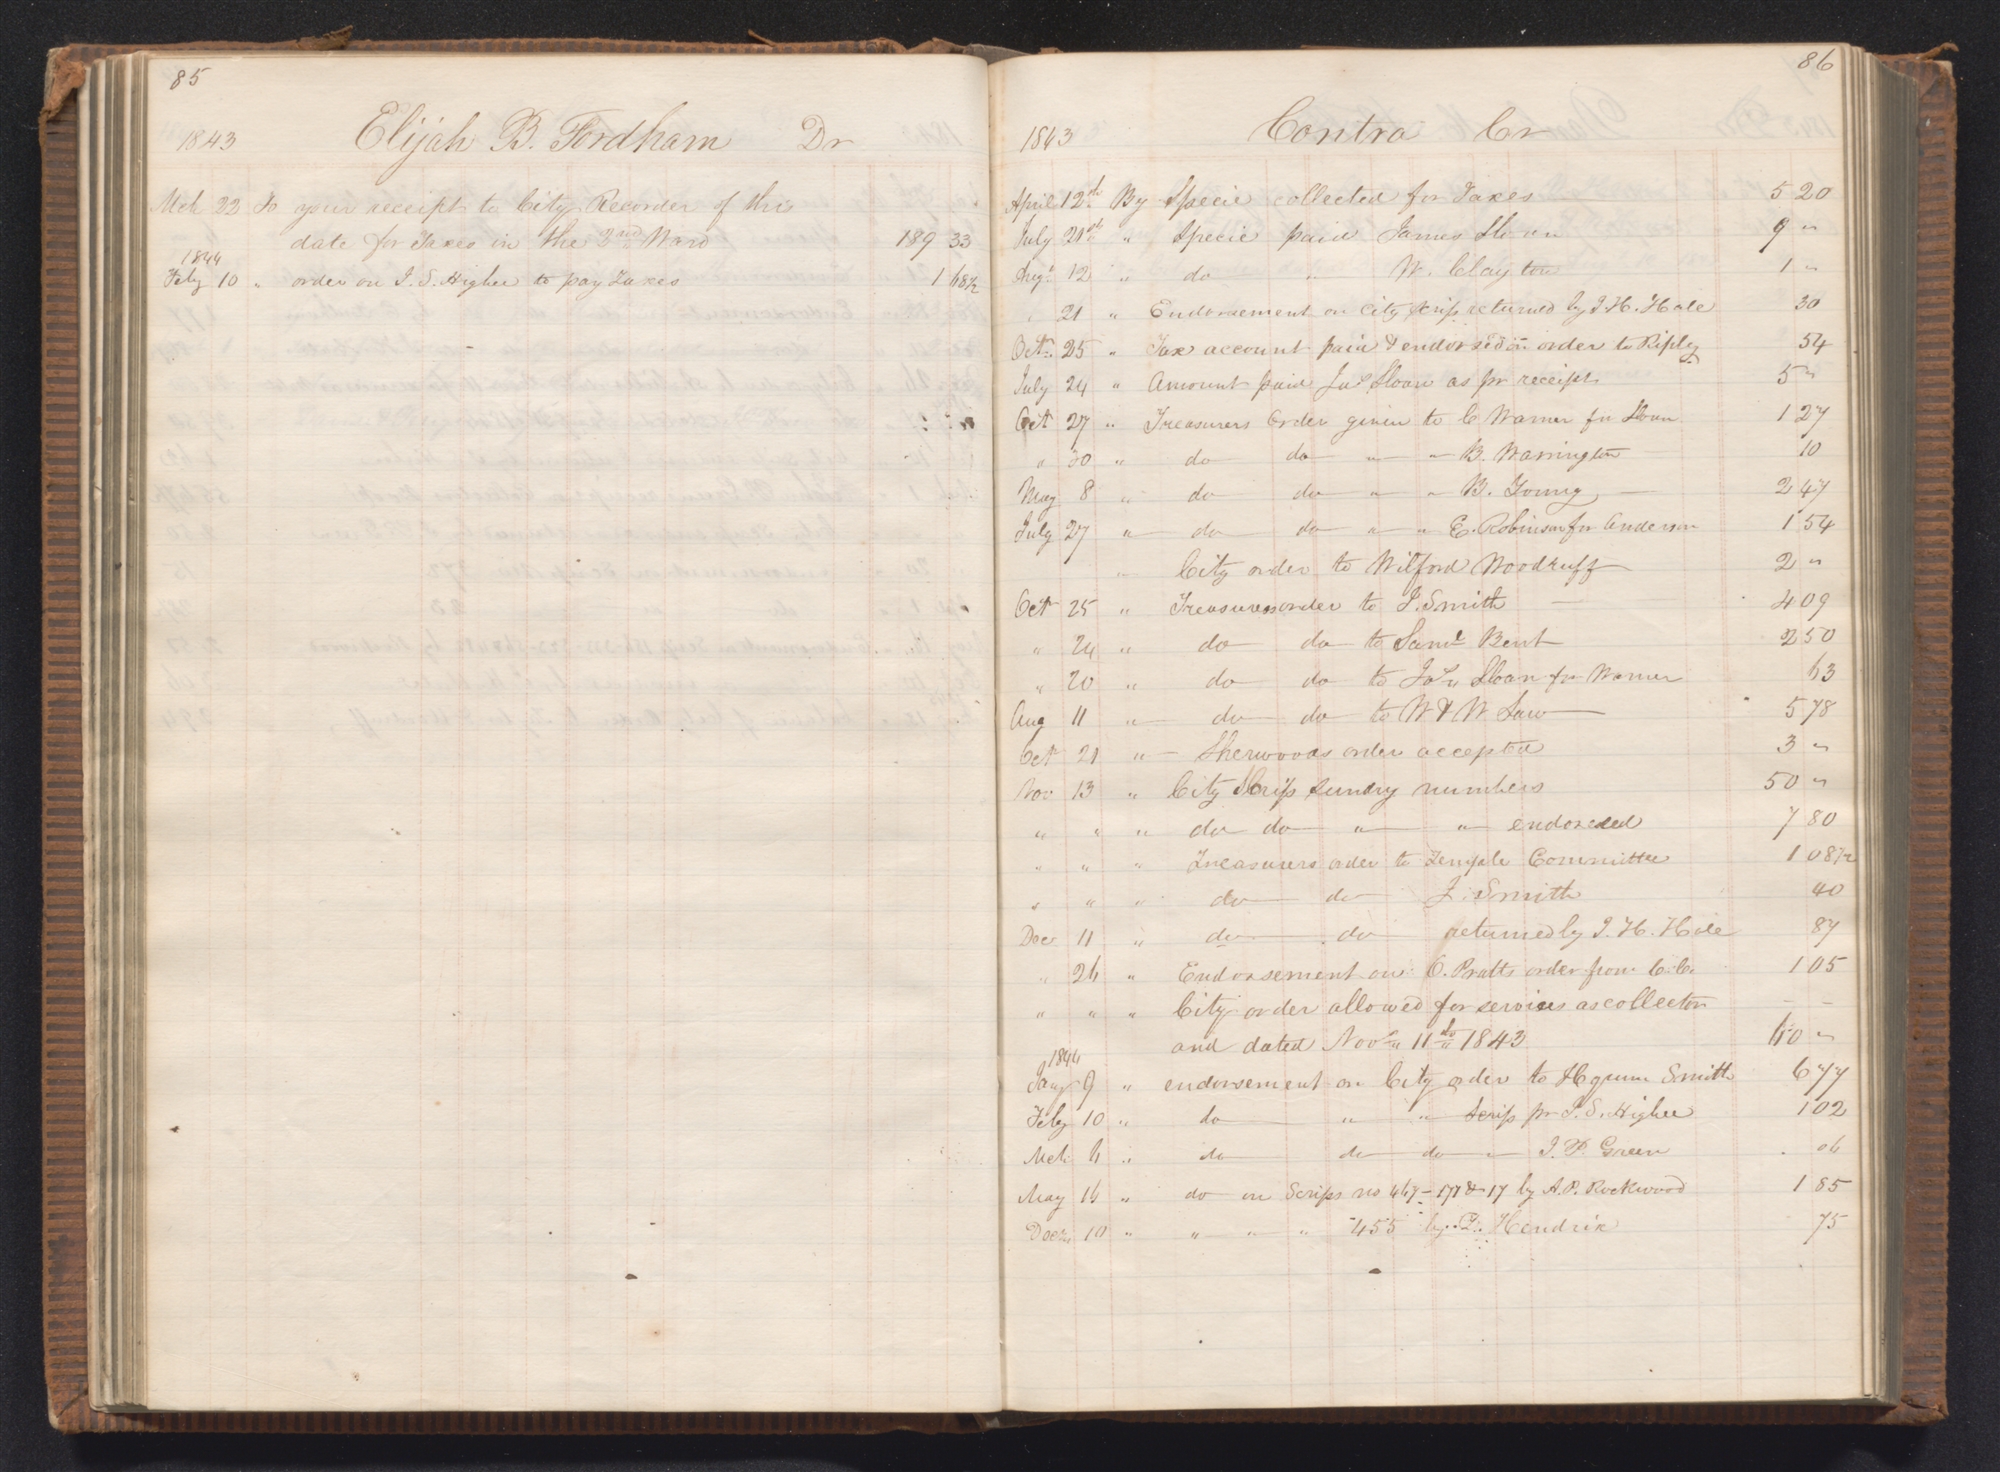 85
1843 Elijah B. Fordham Dr
Mch 22 To your receipt to City Recorder of this
date for Taxes in the 3nd Ward 189 33
1844
Feby 10 " order on I. S. Higbee to pay Taxes 1 68½
86
1843 Contra Cr
April 12th By Specie collected for Taxes 5 20
July 21st " Specie paid James Sloan 9 "
Augt 12 " do " W. Clayton 1 "
" 21 " Endorsement on City scrip returned by J. H. Hale 30
Octr 25 " Tax account paid & endorsed on order to Ripley 54
July 24 " Amount paid Jas Sloan as pr receipt 5 "
Oct 27 " Treasurers Order given to C Warner for Sloan 1 27
" 30 " do do " " B. Warrington 10
May 8 " do do " " B. Young 2 47
July 27 " do do " " E. Robinson for Anderson 1 54
" City order to Wilford Woodruff 2 "
Oct 25 " Treasurers order to J. Smith 4 09
" 24 " do do to Saml Bent 2 50
" 20 " do do to Jas Sloan for Warner 63
Aug 11 " do do to W & W. Law 5 78
Oct 21 " Sherwoods order accepted 3 "
Nov 13 " City Scrip sundry numbers 50 "
" " " do do " " endorsed 7 80
" " " Treasurers order to Temple Committee 1 08½
" " " do do J. Smith 40
Dec 11 " do do returned by J. H. Hale 87
" 26 " Endorsement on O. Pratts order from C. C. 1 05
" " " City order allowed for services as collector - -
and dated Novr 11th 1843 60 "
1844
Jany 9 " endorsement on City order to Hyrum Smith 6 77
Feby 10 " do " " Scrip pr I. S. Higbee 1 02
Mch 6 " do do do " J. P. Green 06
May 16 " do on Scrips no 467-177 & 17 by A. P. Rockwood 1 85
Decr 10 " " " " 455 by Hendrix 75